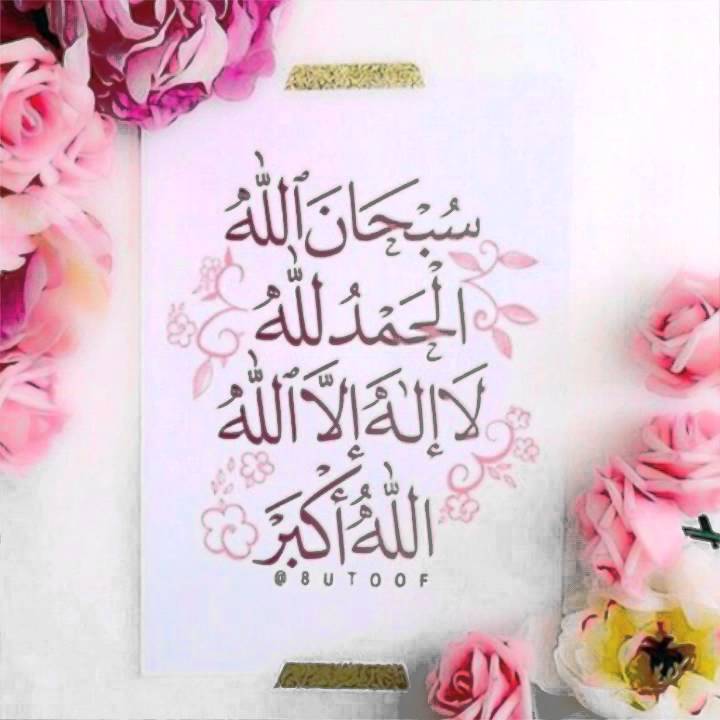 سُبْحَانَ ٱللّٰهُ
الْحَمْدُ للّٰهُ
لَا إِلٰهَ إِلَّا ٱللّٰهُ
اللّٰهُ أَكْبَرْ
@8UTOOF